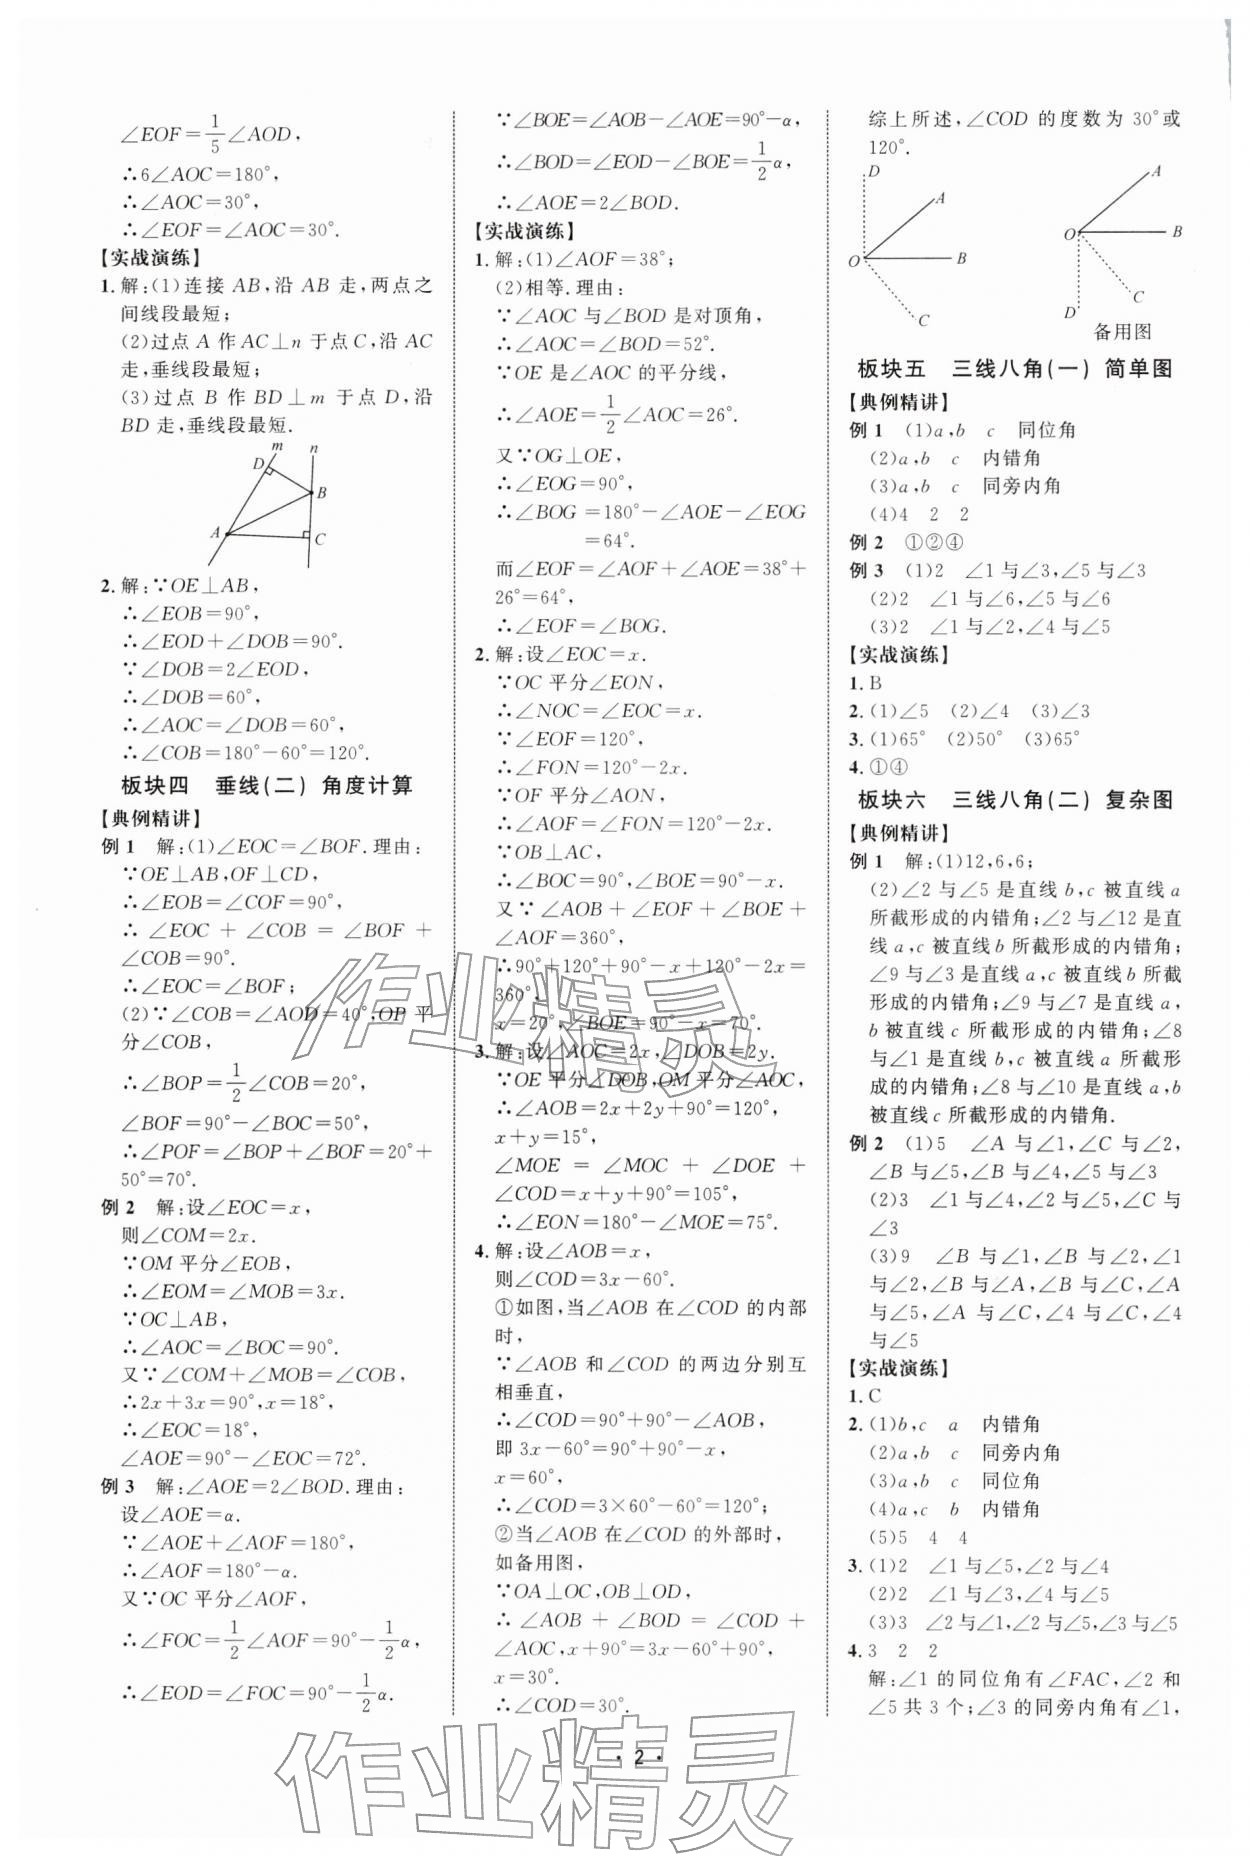 ∠EOF=1/5∠AOD,
∴6∠AOC=180°,
∴∠AOC=30°,
∴∠EOF=∠AOC=30°.
【实战演练】
1.解:(1)连接 AB,沿 AB 走,两点之
间线段最短;
(2)过点 A 作AC⊥n 于点C,沿 AC
走,垂线段最短;
(3)过点 B 作 BD⊥m 于点 D,沿
BD 走,垂线段最短.
m
n
D
B
A
C
2.解:∵OE⊥AB,
∴∠EOB=90°,
∴∠EOD+∠DOB=90°.
∵∠DOB=2∠EOD,
∴∠DOB=60°,
∴∠AOC=∠DOB=60°,
∴∠COB=180°-60°=120°.
板块四 垂线(二) 角度计算
【典例精讲】
例 1 解:(1)∠EOC=∠BOF.理由:
∵OE⊥AB,OF⊥CD,
∴∠EOB=∠COF=90°,
∴ ∠EOC + ∠COB = ∠BOF +
∠COB=90°.
∴∠EOC=∠BOF;
(2)∵∠COB=∠AOD=40°,OP 平
分∠COB,
∴∠BOP=1/2∠COB=20°,
∠BOF=90°-∠BOC=50°,
∴∠POF=∠BOP+∠BOF=20°+
50°=70°.
例 2 解:设∠EOC=x,
则∠COM=2x.
∵OM 平分∠EOB,
∴∠EOM=∠MOB=3x.
∵OC⊥AB,
∴∠AOC=∠BOC=90°.
又∵∠COM+∠MOB=∠COB,
∴2x+3x=90°,x=18°,
∴∠EOC=18°,
∠AOE=90°-∠EOC=72°.
例 3 解:∠AOE=2∠BOD.理由:
设∠AOE=α.
∵∠AOE+∠AOF=180°,
∴∠AOF=180°-α.
又∵OC 平分∠AOF,
∴∠FOC=1/2∠AOF=90°-1/2α,
∴∠EOD=∠FOC=90°-1/2α.
∵∠BOE=∠AOB-∠AOE=90°-α,
∴∠BOD=∠EOD-∠BOE=1/2α,
∴∠AOE=2∠BOD.
【实战演练】
1.解:(1)∠AOF=38°;
(2)相等.理由:
∵∠AOC 与∠BOD 是对顶角,
∴∠AOC=∠BOD=52°.
∵OE 是∠AOC 的平分线,
∴∠AOE=1/2∠AOC=26°.
又∵OG⊥OE,
∴∠EOG=90°,
∴∠BOG =180°-∠AOE-∠EOG
=64°.
而∠EOF=∠AOF+∠AOE=38°+
26°=64°,
∴∠EOF=∠BOG.
2.解:设∠EOC=x.
∵OC 平分∠EON,
∴∠NOC=∠EOC=x.
∵∠EOF=120°,
∴∠FON=120°-2x.
∵OF 平分∠AON,
∴∠AOF=∠FON=120°-2x.
∵OB⊥AC,
∴∠BOC=90°,∠BOE=90°-x.
又∵ ∠AOB+∠EOF+∠BOE+
∠AOF=360°,
∴90°+120°+90°-x+120°-2x=
360°,
x=20°,∠BOE=90°-x=70°.
3.解:设∠AOC=2x,∠DOB=2y.
∵OE 平分∠DOB,OM 平分∠AOC,
∴∠AOB=2x+2y+90°=120°,
x+y=15°,
∠MOE = ∠MOC + ∠DOE +
∠COD=x+y+90°=105°,
∴∠EON=180°-∠MOE=75°.
4.解:设∠AOB=x,
则∠COD=3x-60°.
①如图,当∠AOB 在∠COD 的内部
时,
∵∠AOB 和∠COD 的两边分别互
相垂直,
∴∠COD=90°+90°-∠AOB,
即 3x-60°=90°+90°-x,
x=60°,
∴∠COD=3×60°-60°=120°;
②当∠AOB 在∠COD 的外部时,
如备用图,
∵OA⊥OC,OB⊥OD,
∴ ∠AOB + ∠BOD = ∠COD +
∠AOC,x+90°=3x-60°+90°,
x=30°.
∴∠COD=30°.
综上所述,∠COD 的度数为 30°或
120°.
D
A
O
B
C
A
O
B
C
D
备用图
板块五 三线八角(一) 简单图
【典例精讲】
例 1 (1)a,b c 同位角
(2)a,b c 内错角
(3)a,b c 同旁内角
(4)4 2 2
例 2 ①②④
例 3 (1)2 ∠1与∠3,∠5与∠3
(2)2 ∠1与∠6,∠5与∠6
(3)2 ∠1与∠2,∠4与∠5
【实战演练】
1.B
2.(1)∠5 (2)∠4 (3)∠3
3.(1)65° (2)50° (3)65°
4.①④
板块六 三线八角(二) 复杂图
【典例精讲】
例 1 解:(1)12,6,6;
(2)∠2 与∠5 是直线 b,c 被直线 a
所截形成的内错角;∠2 与∠12 是直
线 a,c 被直线 b 所截形成的内错角;
∠9 与∠3 是直线 a,c 被直线 b 所截
形成的内错角;∠9 与∠7 是直线 a,
b 被直线 c 所截形成的内错角;∠8
与∠1 是直线 b,c 被直线 a 所截形
成的内错角;∠8 与∠10 是直线 a,b
被直线 c 所截形成的内错角.
例 2 (1)5 ∠A 与∠1,∠C 与∠2,
∠B 与∠5,∠B 与∠4,∠5 与∠3
(2)3 ∠1 与∠4,∠2 与∠5,∠C 与
∠3
(3)9 ∠B 与∠1,∠B 与∠2,∠1
与∠2,∠B 与∠A,∠B 与∠C,∠A
与∠5,∠A 与∠C,∠4 与∠C,∠4
与∠5
【实战演练】
1.C
2.(1)b,c a 内错角
(2)a,b c 同旁内角
(3)a,b c 同位角
(4)a,c b 内错角
(5)5 4 4
3.(1)2 ∠1与∠5,∠2与∠4
(2)2 ∠1与∠3,∠4与∠5
(3)3 ∠2与∠1,∠2与∠5,∠3与∠5
4.3 2 2
解:∠1 的同位角有∠FAC,∠2 和
∠5 共 3 个;∠3 的同旁内角有∠1,
· 2 ·
作业精灵
作业精灵